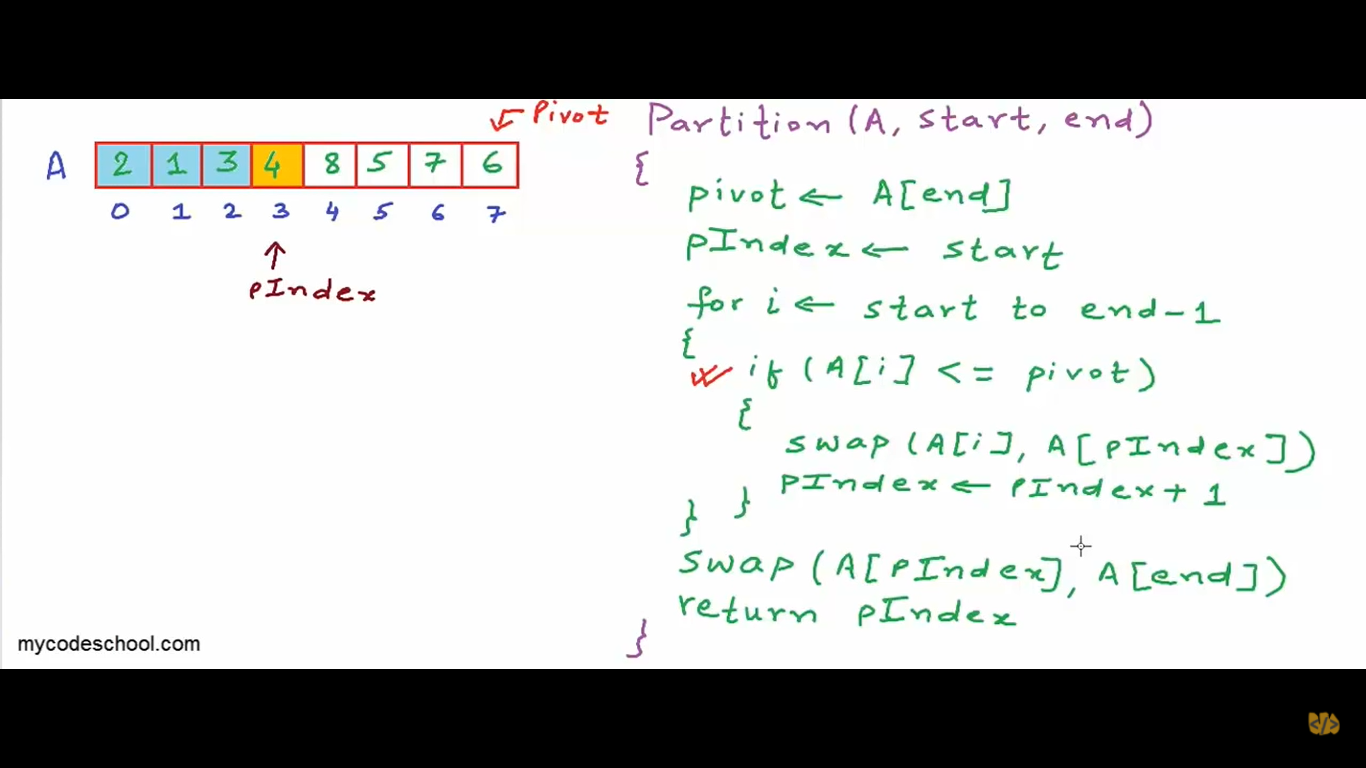 Pivot
A 2 1 3 4 8 5 7 6
0 1 2 3 4 5 6 7
pIndex
Partition (A, start, end)
{
pivot ← A[end]
pIndex ← start
for i ← start to end-1
{
if (A[i] <= pivot)
{
swap (A[i], A[pIndex])
pIndex ← pIndex + 1
} }
swap (A[pIndex], A[end])
return pIndex
}
mycodeschool.com